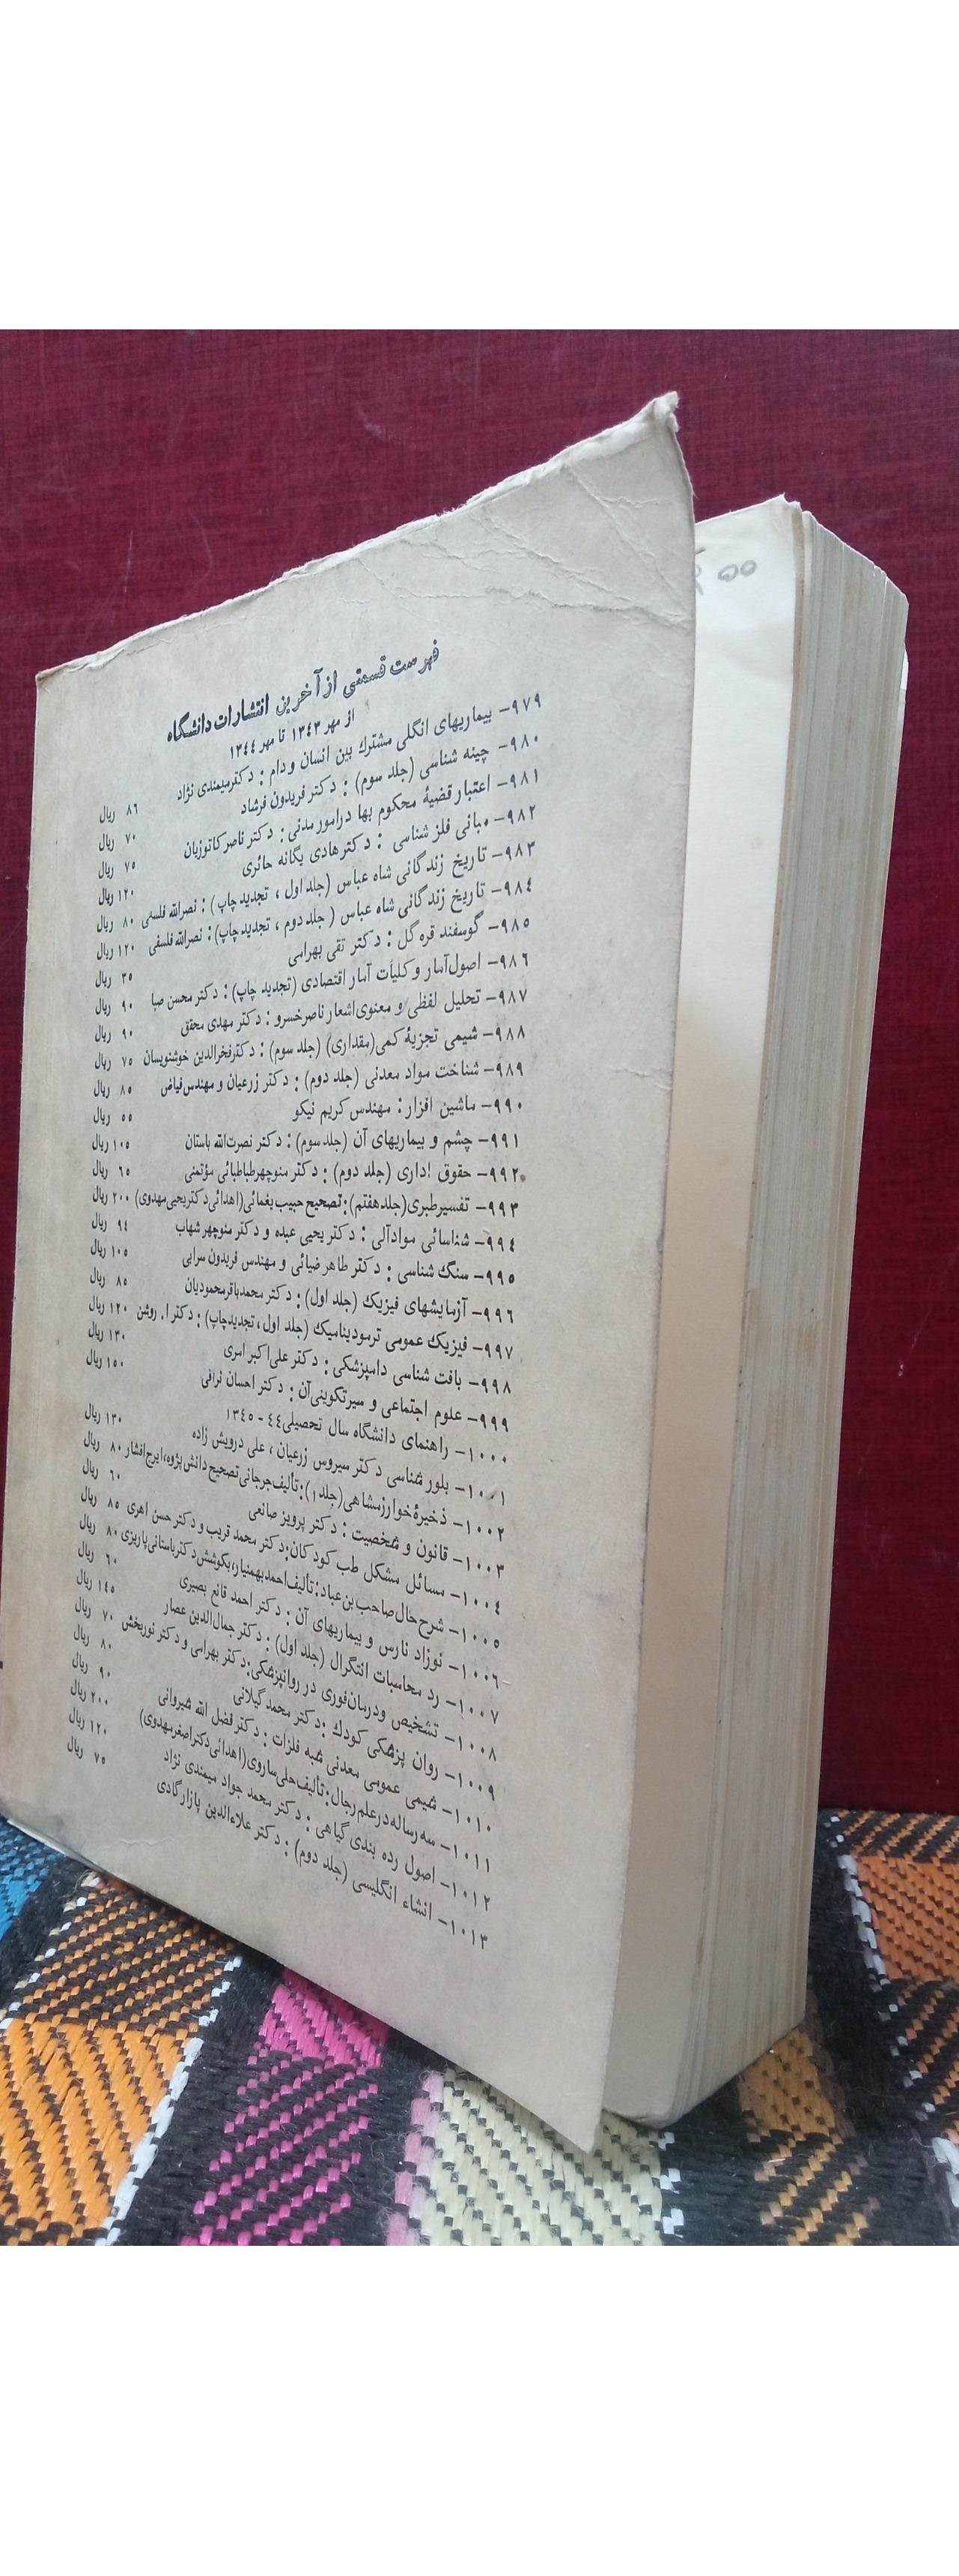 فهرست قسمتی از آخرین انتشارات دانشگاه
از مهر ۱۳۴۳ تا مهر ۱۳۴۴
۹۷۹- بیماریهای انگلی مشترك بین انسان و دام : دکتر میمندی نژاد ۸۶ ریال
۹۸۰- چینه شناسی (جلد سوم) : دکتر فریدون فرشاد ۷۰ ریال
۹۸۱- اعتبار قضیهٔ محکوم بها در امور مدنی : دکتر ناصر کاتوزیان ۷۵ ریال
۹۸۲- مبانی فلز شناسی : دکتر هادی یگانه حائری ۱۲۰ ریال
۹۸۳- تاریخ زندگانی شاه عباس (جلد اول ، تجدید چاپ) : نصرالله فلسفی ۸۰ ریال
۹۸۴- تاریخ زندگانی شاه عباس (جلد دوم ، تجدید چاپ) : نصرالله فلسفی ۱۲۰ ریال
۹۸۵- گوسفند قره گل : دکتر تقی بهرامی ۳۵ ریال
۹۸۶- اصول آمار و کلیات آمار اقتصادی (تجدید چاپ) : دکتر محسن صبا ۹۰ ریال
۹۸۷- تحلیل لفظی و معنوی اشعار ناصر خسرو : دکتر مهدی محقق ۹۰ ریال
۹۸۸- شیمی تجزیهٔ کمی (مقداری) (جلد سوم) : دکتر فخرالدین خوشنویسان ۷۵ ریال
۹۸۹- شناخت مواد معدنی (جلد دوم) : دکتر زرعیان و مهندس فیاض ۸۵ ریال
۹۹۰- ماشین افزار : مهندس کریم نیکو ۵۵ ریال
۹۹۱- چشم و بیماریهای آن (جلد سوم) : دکتر نصرت‌الله باستان ۱۰۵ ریال
۹۹۲- حقوق اداری (جلد دوم) : دکتر منوچهر طباطبائی مؤتمنی ۶۵ ریال
۹۹۳- تفسیر طبری (جلد هفتم) : تصحیح حبیب یغمائی (اهدائی دکتر یحیی مهدوی) ۲۰۰ ریال
۹۹۴- شناسائی مواد آلی : دکتر یحیی عبده و دکتر منوچهر شهاب ۹۴ ریال
۹۹۵- سنگ شناسی : دکتر طاهر ضیائی و مهندس فریدون سرابی ۱۰۵ ریال
۹۹۶- آزمایشهای فیزیك (جلد اول) : دکتر محمدباقر محمودیان ۸۵ ریال
۹۹۷- فیزیك عمومی ترمودینامیك (جلد اول ، تجدید چاپ) : دکتر ا. روشن ۱۲۰ ریال
۹۹۸- بافت شناسی دامپزشکی : دکتر علی‌اکبر امری ۱۳۰ ریال
۹۹۹- علوم اجتماعی و سیر تکوینی آن : دکتر احسان نراقی ۱۵۰ ریال
۱۰۰۰- راهنمای دانشگاه سال تحصیلی ۴۴ - ۱۳۴۵
۱۰۰۱- بلور شناسی دکتر سیروس زرعیان ، علی درویش زاده ۱۳۰ ریال
۱۰۰۲- ذخیرهٔ خوارزمشاهی (جلد ۱) : تألیف جرجانی تصحیح دانش پژوه ، ایرج افشار ۸۰ ریال
۱۰۰۳- قانون و شخصیت : دکتر پرویز صانعی ۶۰ ریال
۱۰۰۴- مسائل مشکل طب کودکان : دکتر محمد قریب و دکتر حسن اهری ۸۵ ریال
۱۰۰۵- شرح حال صاحب بن عباد : تألیف احمد بهمنیار ، بکوشش دکتر باستانی پاریزی ۸۰ ریال
۱۰۰۶- نوزاد نارس و بیماریهای آن : دکتر احمد قانع بصیری ۶۰ ریال
۱۰۰۷- رد محاسبات انتگرال (جلد اول) : دکتر جمال‌الدین عصار ۱۴۵ ریال
۱۰۰۸- تشخیص و درمان فوری در روانپزشکی : دکتر بهرامی و دکتر نوربخش ۷۰ ریال
۱۰۰۹- روان پزشکی کودك : دکتر محمد گیلانی ۸۰ ریال
۱۰۱۰- شیمی عمومی معدنی شبه فلزات : دکتر فضل الله شیروانی ۹۰ ریال
۱۰۱۱- سه رساله در علم رجال : تألیف حلی ساروی (اهدائی دکتر اصغر مهدوی) ۲۰۰ ریال
۱۰۱۲- اصول رده بندی گیاهی : دکتر محمد جواد میمندی نژاد ۱۲۰ ریال
۱۰۱۳- انشاء انگلیسی (جلد دوم) : دکتر علاءالدین پازارگادی ۷۵ ریال